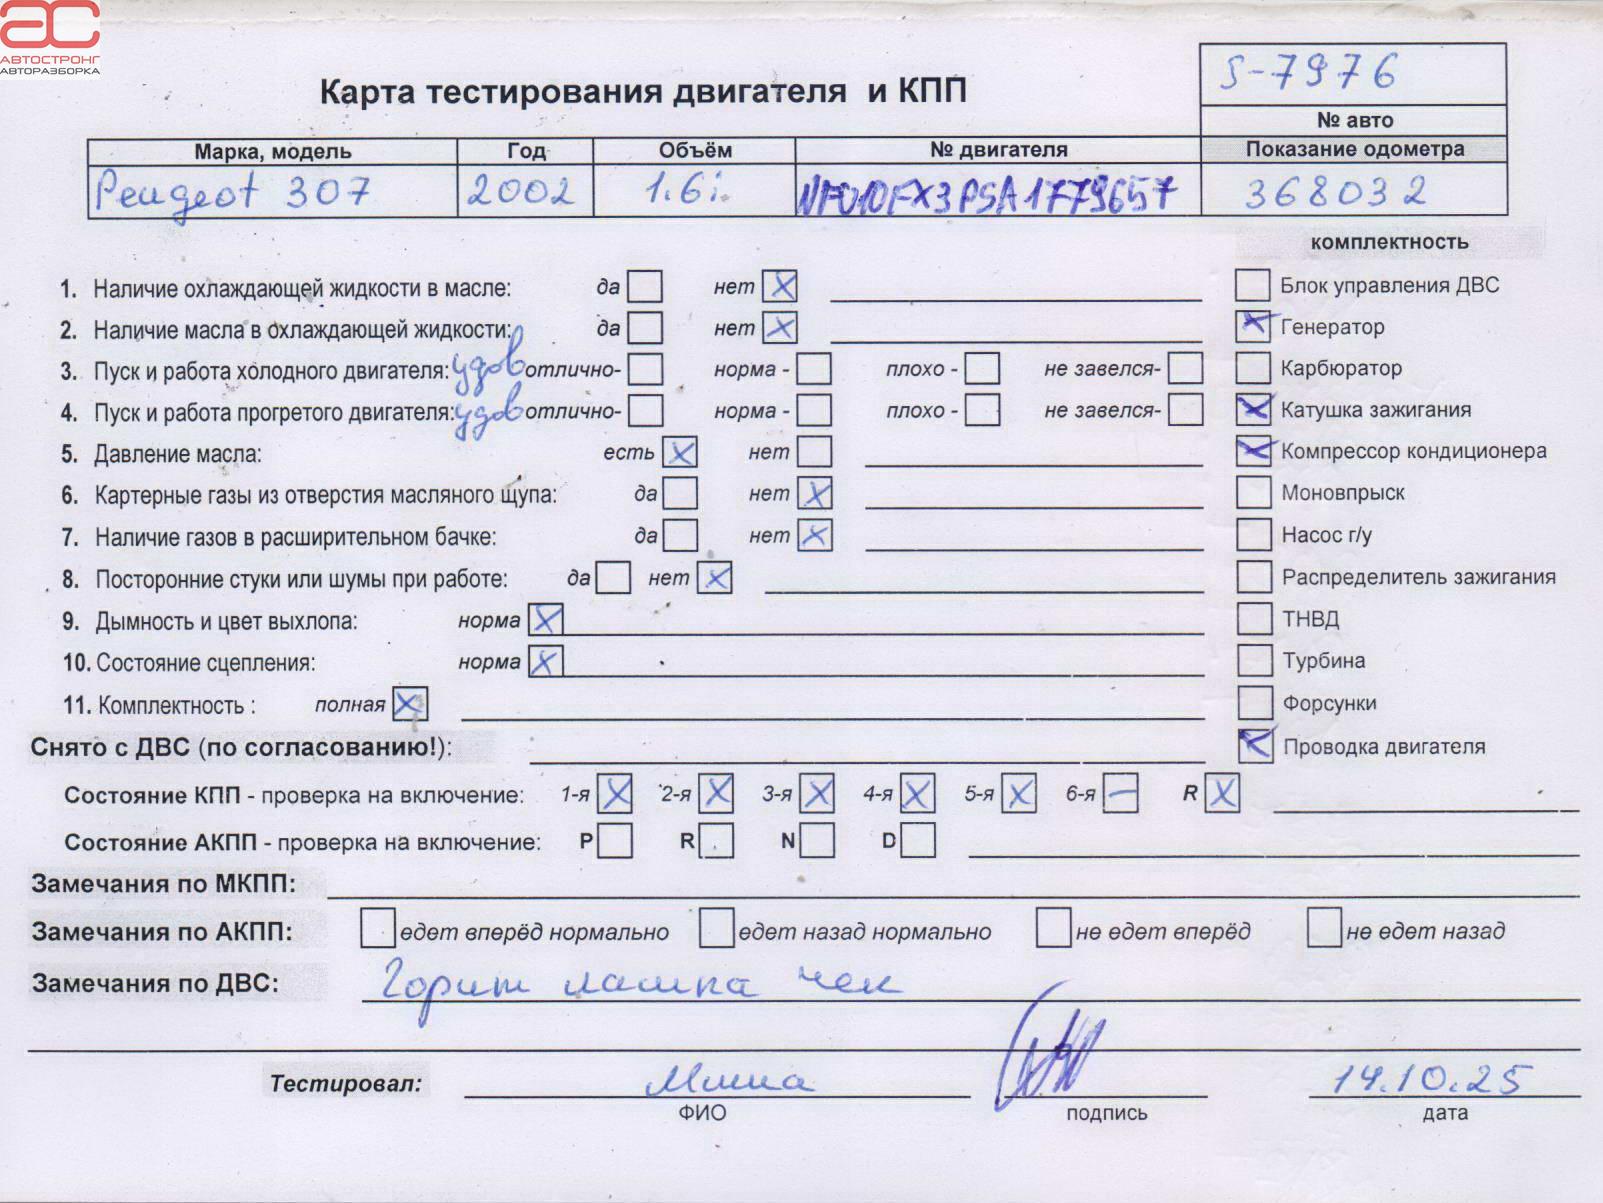 АВТОСТРОНГ
АВТОРАЗБОРКА
Карта тестирования двигателя и КПП
S-7976
№ авто
Марка, модель Год Объём № двигателя Показание одометра
Peugeot 307 2002 1.6i. NFU10FX3PSA1779657 368032
комплектность
1. Наличие охлаждающей жидкости в масле: да нет X Блок управления ДВС
2. Наличие масла в охлаждающей жидкости: да нет X X Генератор
3. Пуск и работа холодного двигателя: удов отлично- норма - плохо - не завелся- Карбюратор
4. Пуск и работа прогретого двигателя: удов отлично- норма - плохо - не завелся- X Катушка зажигания
5. Давление масла: есть X нет X Компрессор кондиционера
6. Картерные газы из отверстия масляного щупа: да нет X Моновпрыск
7. Наличие газов в расширительном бачке: да нет X Насос г/у
8. Посторонние стуки или шумы при работе: да нет X Распределитель зажигания
9. Дымность и цвет выхлопа: норма X ТНВД
10. Состояние сцепления: норма X Турбина
11. Комплектность : полная X Форсунки
Снято с ДВС (по согласованию!): X Проводка двигателя
Состояние КПП - проверка на включение: 1-я X 2-я X 3-я X 4-я X 5-я X 6-я — R X
Состояние АКПП - проверка на включение: P R N D
Замечания по МКПП:
Замечания по АКПП: едет вперёд нормально едет назад нормально не едет вперёд не едет назад
Замечания по ДВС: Горит лампа чек
Тестировал: 14.10.25
ФИО подпись дата